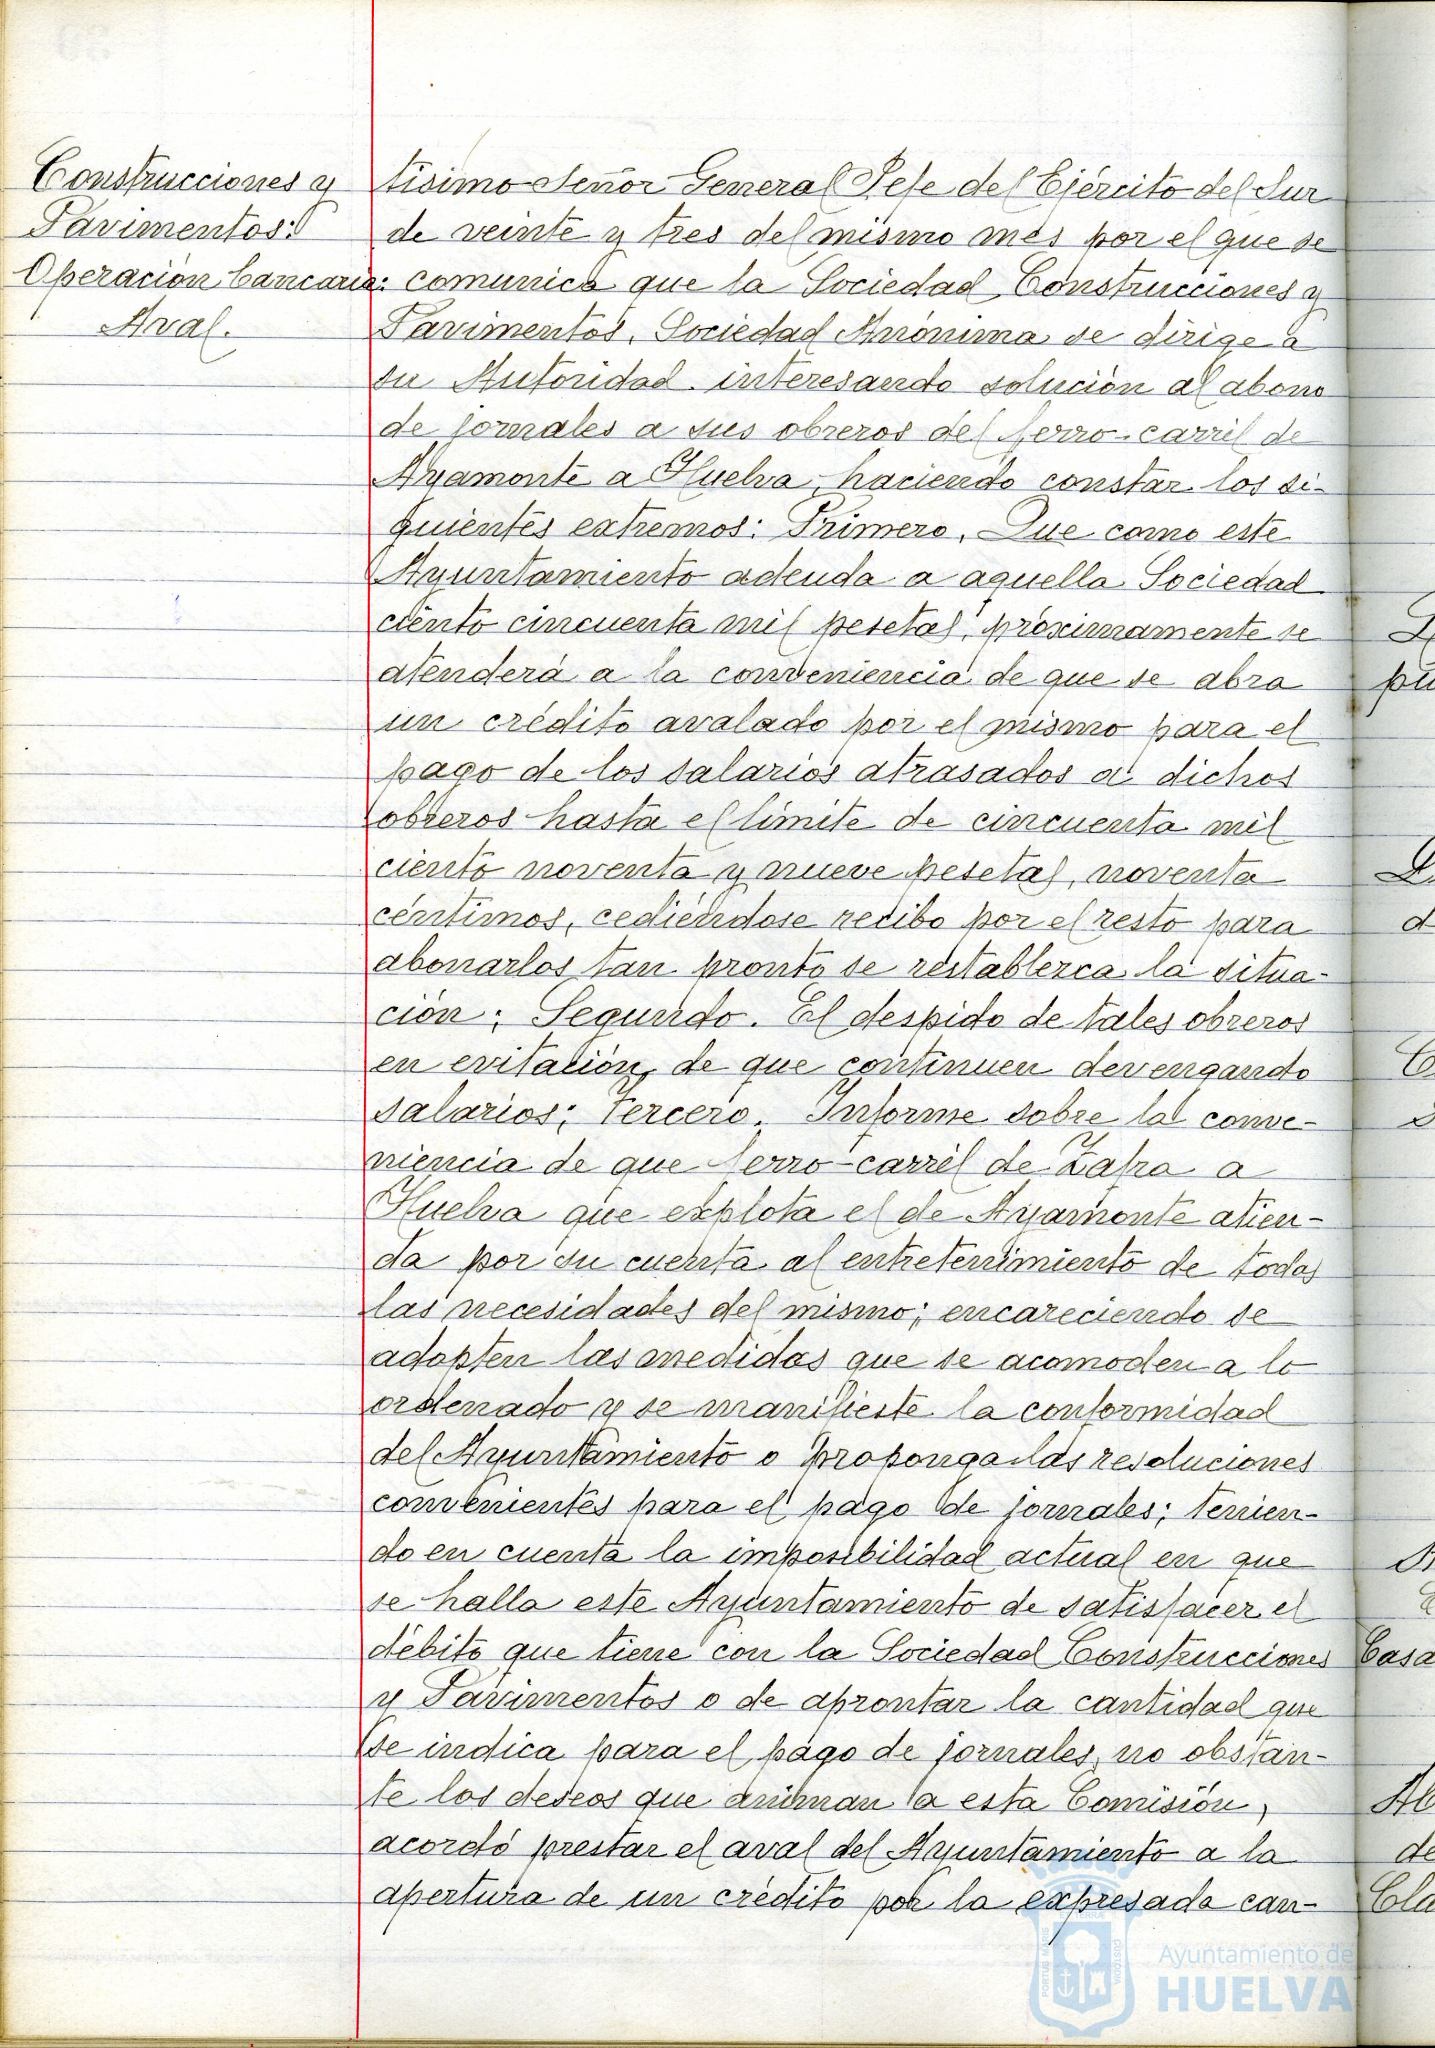 Construcciones y
Pavimentos:
Operación bancaria:
Aval.
tísimo Señor General Jefe del Ejército del Sur
de veinte y tres del mismo mes por el que se
comunica que la Sociedad Construcciones y
Pavimentos, Sociedad Anónima se dirige a
su Autoridad interesando solución al abono
de jornales a sus obreros del ferro-carril de
Ayamonte a Huelva, haciendo constar los si-
guientes extremos: Primero. Que como este
Ayuntamiento adeuda a aquella Sociedad
ciento cincuenta mil pesetas, próximamente se
atenderá a la conveniencia de que se abra
un crédito avalado por el mismo para el
pago de los salarios atrasados a dichos
obreros hasta el límite de cincuenta mil
ciento noventa y nueve pesetas, noventa
céntimos, cediéndose recibo por el resto para
abonarlos tan pronto se restablezca la situa-
ción; Segundo. El despido de tales obreros
en evitación de que continuen devengando
salarios; Tercero. Informe sobre la conve-
niencia de que ferro-carril de Zafra a
Huelva que explota el de Ayamonte atien-
da por su cuenta al entretenimiento de todas
las necesidades del mismo; encareciendo se
adopten las medidas que se acomoden a lo
ordenado y se manifieste la conformidad
del Ayuntamiento o proponga las resoluciones
convenientes para el pago de jornales; tenien-
do en cuenta la imposibilidad actual en que
se halla este Ayuntamiento de satisfacer el
débito que tiene con la Sociedad Construcciones
y Pavimentos o de aprontar la cantidad que
se indica para el pago de jornales, no obstan-
te los deseos que animan a esta Comisión,
acordó prestar el aval del Ayuntamiento a la
apertura de un crédito por la expresada can-
Ayuntamiento de
HUELVA